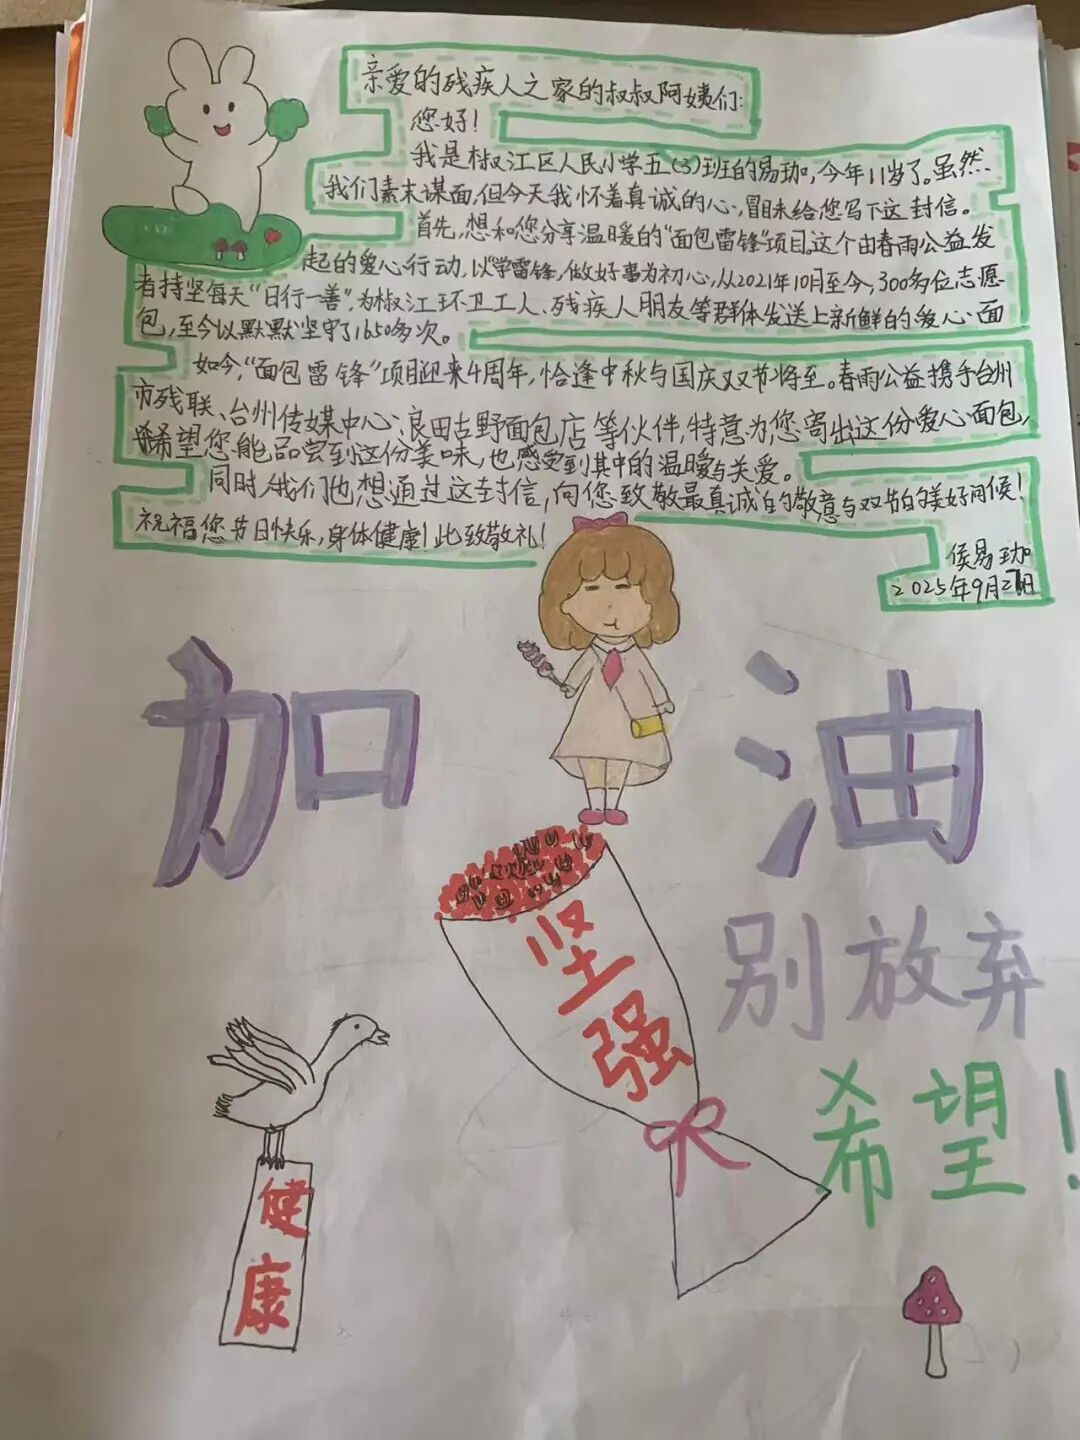 亲爱的残疾人之家的叔叔阿姨们:
您好!
我是椒江区人民小学五(3)班的易珈,今年11岁了。虽然
我们素未谋面,但今天我怀着真诚的心,冒昧给您写下这封信。
首先,想和您分享温暖的“面包雷锋”项目。这个由春雨公益发
起的爱心行动,以“学雷锋,做好事为初心,从2021年10月至今,300多位志愿
者持坚每天“日行一善”,为椒江环卫工人、残疾人朋友等群体发送上新鲜的爱心面
包,至今以默默坚守了1650多次。
如今,“面包雷锋”项目迎来4周年,恰逢中秋与国庆双节将至。春雨公益携手台州
市残联、台州传媒中心、良田吉野面包店等伙伴,特意为您寄出这份爱心面包,
希望您能品尝到这份美味,也感受到其中的温暖与关爱。
同时,我们也想通过这封信,向您致敬最真诚的敬意与双节的美好问候!
祝福您节日快乐,身体健康!此致敬礼!
侯易珈
2025年9月27日
加油
别放弃
希望!
坚强
健康